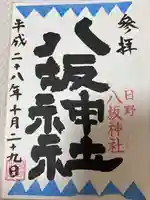 参拝
日野
八坂神社
八坂神社
平成二十八年十月二十九日